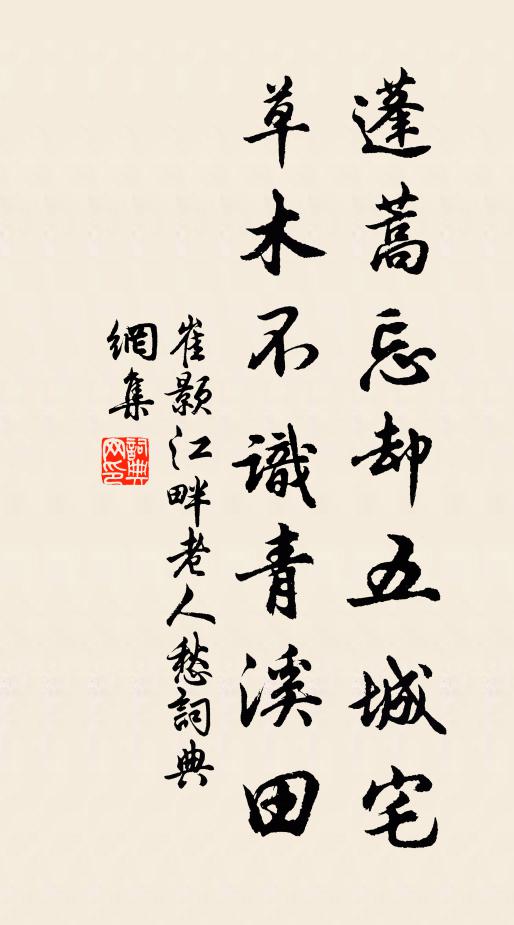 蓬蒿忘却五城宅
草木不識青溪田
崔颢江畔老人愁詞典
網集
詞典网印